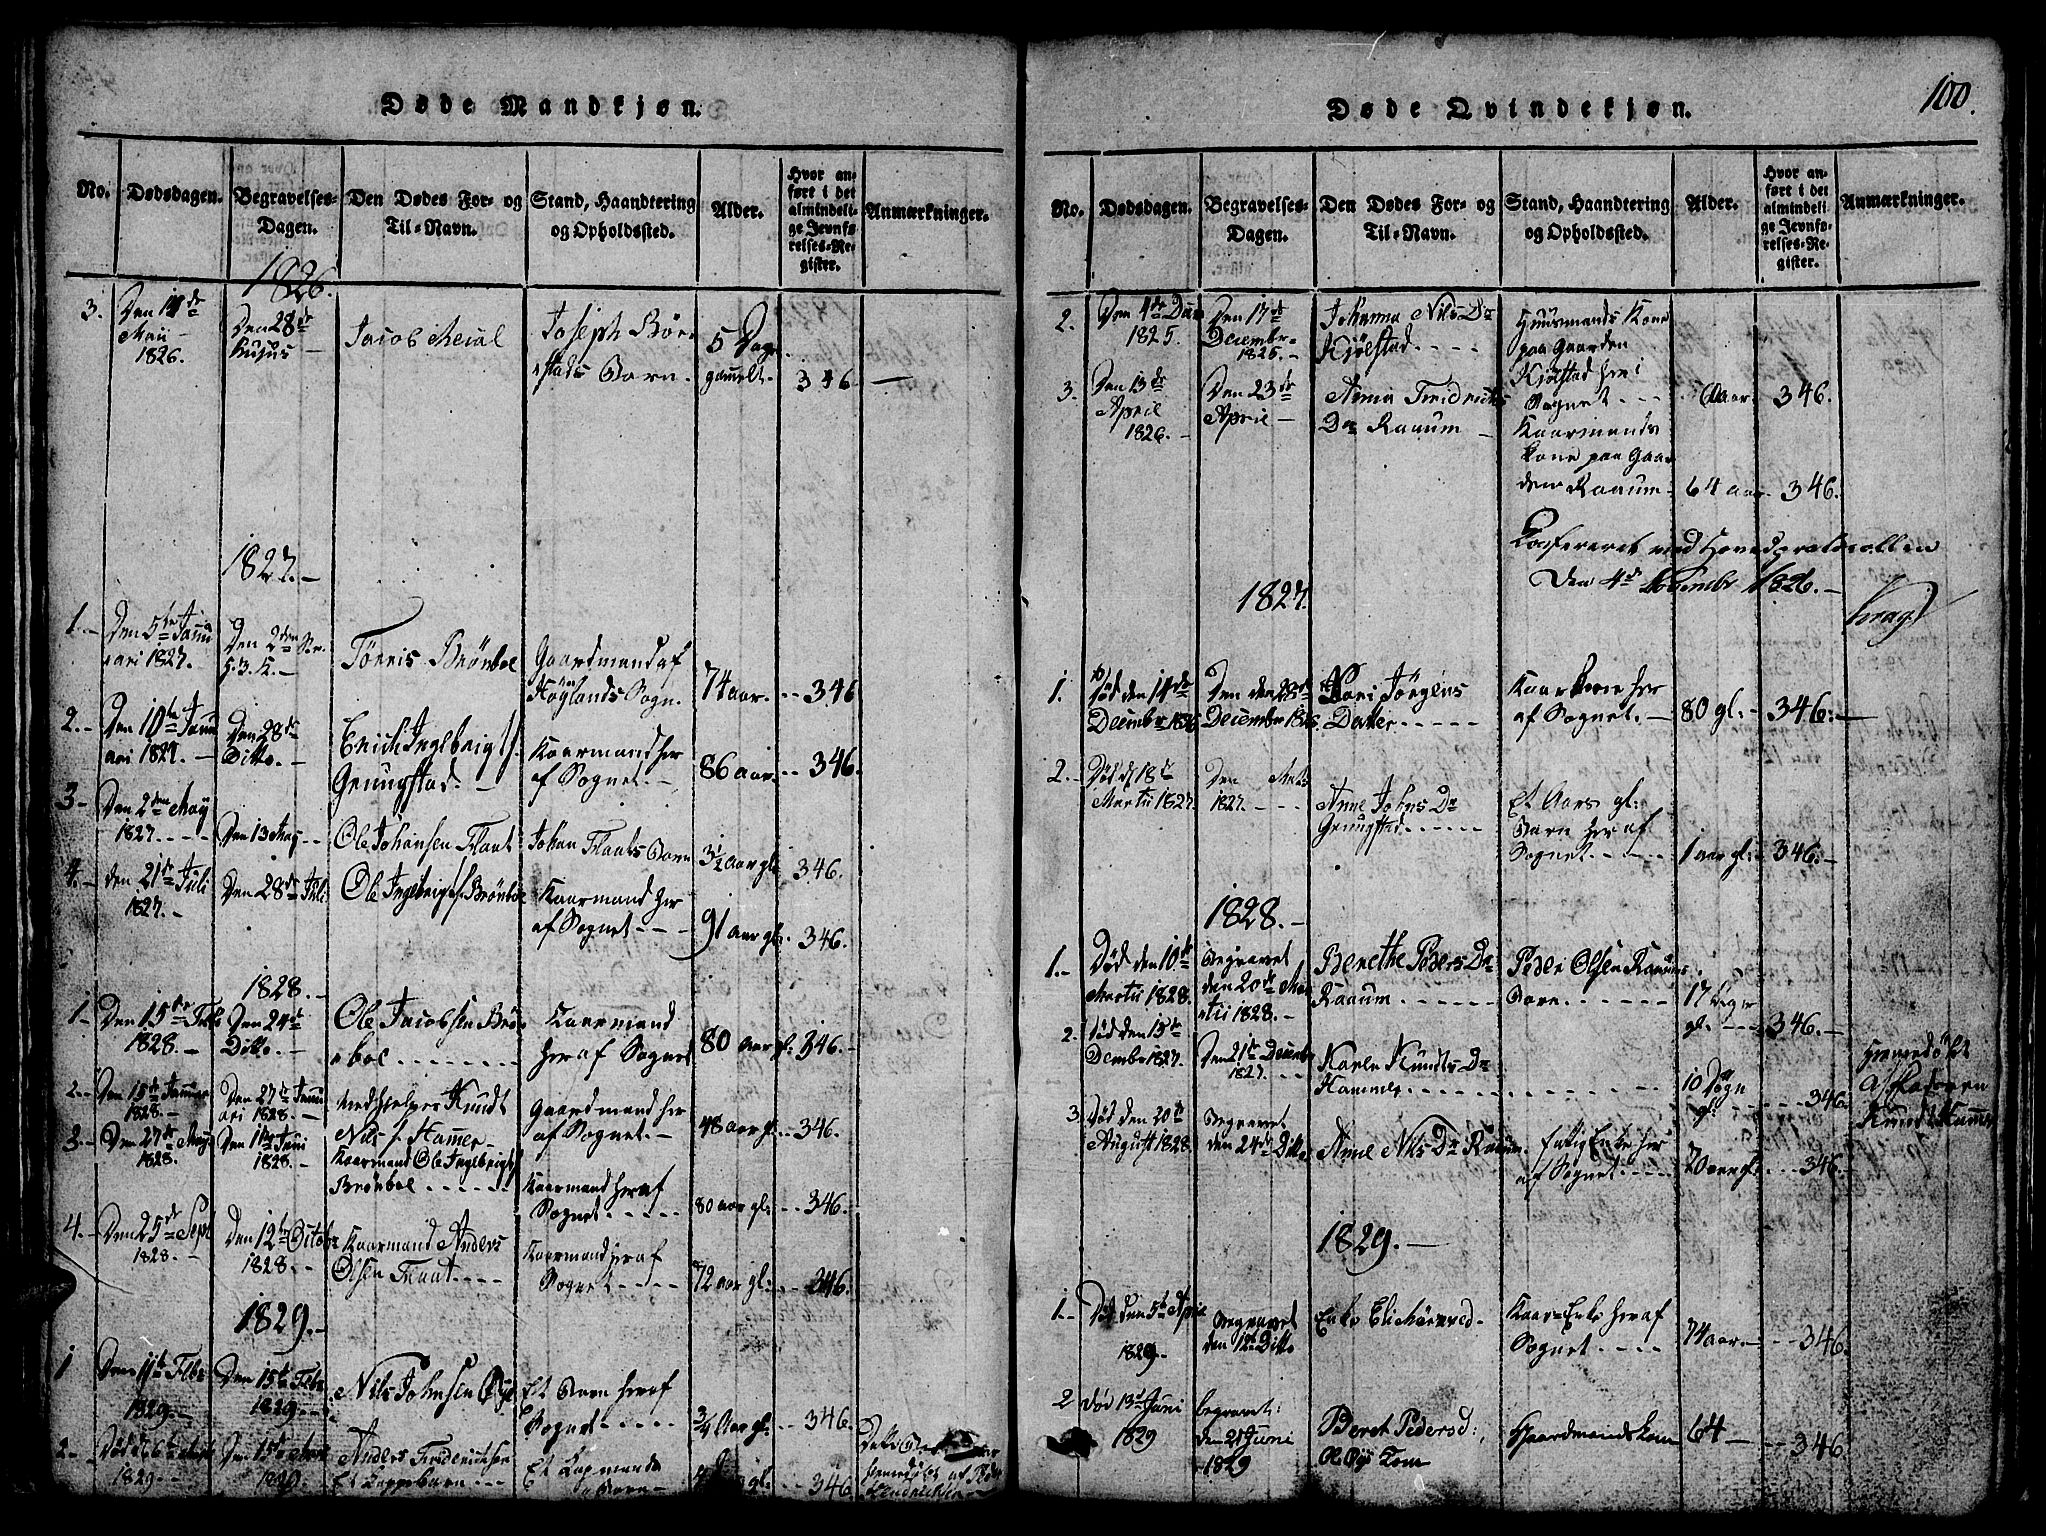 100.
Døde Mandkjøn.
No.
Dødsdagen.
Begravelses-
Dagen.
Den Dødes For- og
Til-Navn.
Stand, Haandtering
og Opholdssted.
Alder.
Hvor an-
ført i det
almindeli-
ge Jevnfø-
relses-Re-
gister.
Anmærkninger.
1826.
3. Den
Maii
1826.
Den 28de
Jacob Meial
Joseph Bör-
stads Barn.
5 Dage
gamelt. 346. —
1827. —
1. — Den 5te Janu
ari 1827.
Den 2den
Tönnis Brönboe
Gaardmand af
Höylands Sogn.
74 aar. -- 346
2. — Den 10te Janu
ari 1827. —
Den 28de
Ditto. —
Erich Ingebrigts.
Grungstad. —
Kaarmand her
af Sognet. —
86 aar. -- 346.
3 — Den 2den May
1827. - - - -
Den 13 May - -
Ole Johansen Flaat
Johan Flaats Barn
3 1/2 aar gl. 346.
4. — den 21de Juli
1827. —
Den 28de Juli
Ole Ingebrigts. Brönboe
Kaarmand her
af Sognet - - -
91 aar gl. 346.
1828. —
1 — Den 15de Febr
1828. —
Den 24de
Ditto. —
Ole Jacobsen Brön-
boe. - - - - -
Kaarmand
her af Sognet
80 aar gl. 346. —
2. — Den 15de Januar
1828. —
Den 27de Janu
ari 1828. —
Medhjelper Knudt
Nils s. Hamer —
Gaardmand her
af Sognet. —
48 aar gl. -- 346.
3 — Den 27de May
1828.
Den 1ste Juni
1828. —
Kaarmand Ole Ingebrigts
Brönboe - - - - -
Kaarmand her af
Sognet - - - -
80 aar gl. -- 346.
4. — Den 25de Sept
1828. —
Den 12te Octobr
1828. —
Kaarmand Anders
Olsen Flaat - - - -
Kaarmand her af
Sognet - - - - -
72 aar gl. -- 346.
1829. —
1 Den 11te Febr
1829. —
Den 15de Febr
1829. —
Nils Johnsen Öye
Et Barn her af
Sognet - - - - -
3/4 Aar gl. -- 346.
2 — Död d 6te
1829. —
Den 15de
1829.
Anders Fredericksen
Et Lappebarn - - -
Et Lapmands
Barn —
gl. -- 346.
Døde Qvindekjøn.
No.
Dødsdagen.
Begravelses-
Dagen.
Den Dødes For- og
Til-Navn.
Stand, Haandtering
og Opholdssted.
Alder.
Hvor an-
ført i det
almindeli-
ge Jevnfø-
relses-Re-
gister.
Anmærkninger.
2. Den 4de
1825.
Den 17de
Decembr
1825. —
Johanna Nils Dr
Kjölstad - - - -
Huusmands Kone
paa Gaarden
Kjölstad her i
Sognet - - -
aar. 346.
3. Den 13de
April
1826. —
Den 23de
April —
Anna Fredricks
Dr Raaum —
Kaarmands
Kone paa Gaar
den Raaum. 64 aar. 346.
Confereret med Hovedprotocollen
Den 4de 1826. —
Krag
1827.
1. Död den 14de
Decembr 1826
Den den 28de
Decembr 1826.
Kari Jörgens
Datter - - - - -
Kaarkone her
af Sognet. — 80 gl. — 346. —
2. — Död d 18de
Martii 1827.
Den
1827. - - -
Anne Johns Dr
Grungstad - - - - -
Et Aars gl:
Barn her af
Sognet - - - - 1 aar gl. 346. —
1828. —
1. — Död den 10de
Martii 1828.
Begravet
den 20de Mar
tii 1828. —
Berethe Peders Dr
Raaum - - - - -
Peder Olsen Raaums
Barn - - - - - -
17 Uger
gl. - - - 346. —
2. Död den 15de
Decembr 1827.
Den 21de Decembr
1827. - -
Karen Knudts Dr
Hammer - - - - - -
10 Dögn
gl. - - - 346.
Hjemmedöbt
af Faderen
Knudt Hamer
3. Död den 20de
August 1828.
Begravet
den 24de Ditto
Anne Nils Dr Raaum.
Fattig Enke her
af Sognet - - - -
70 aar gl. - - - 346.
1829. —
1. — Död den 5te April
1829. —
Begravet
den 12te Ditto
Enke Eli
Kaar-Enke her af
Sognet - - - -
74 aar. — -- 346.
2 död 13d Juni
1829
begravet:
den 21 Juni
1829
Beret Pedersd:
Gaardmandskone 64 — -- 346